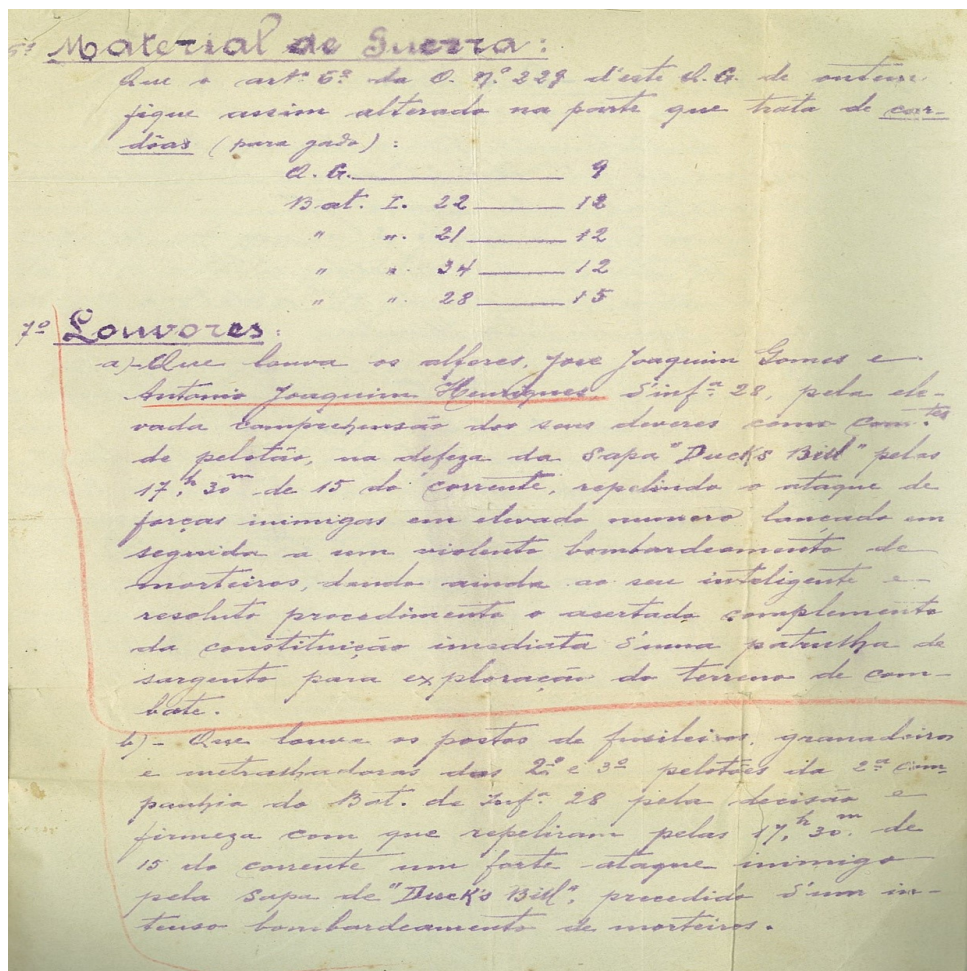 5º Material de Guerra:
Que o artº 6º da O. nº 229 d'este Q.G. de ontem
fique assim alterado na parte que trata de cor-
dôas (para gado):
Q. G. 9
Bat. I. 22 12
" ". 21 12
" ". 34 12
" ". 28 15
7º Louvores:
a)-Que louva os alferes, Jose Joaquim Gomes e
Antonio Joaquim Henriques d'infª 28, pela ele-
vada comprehensão dos seus deveres como Com.tes
de pelotão, na defeza da Sapa "Duck's Bill" pelas
17,h 30m de 15 do corrente, repelindo o ataque de
forças inimigas em elevado numero lançado em
seguida a um violento bombardeamento de
morteiros, dando ainda ao seu inteligente e
resoluto procedimento o asertado complemento
da constituição imediata d'uma patrulha de
sargento para exploração do terreno de com-
bate.
b)- Que louva os postos de fusileiros, granadeiros
e metralhadoras dos 2º e 3º pelotões da 2ª Com-
panhia do Bat. de Infª 28 pela decisão e
firmeza com que repeliram pelas 17,h 30m de
15 do corrente um forte ataque inimigo
pela Sapa de "Duck's Bill", precedido d'um in-
tenso bombardeamento de morteiros.